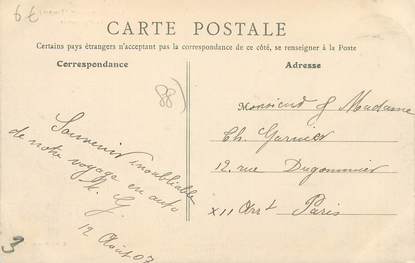 6€
CARTE POSTALE
Certains pays étrangers n'acceptant pas la correspondance de ce côté, se renseigner à la Poste
Correspondance
88)
Souvenir inoubliable
de notre voyage en auto
M. G.
12 Août 07
3
Adresse
Monsieur & Madame
Ch. Garnier
12, rue Dugommier
XII Arrt Paris